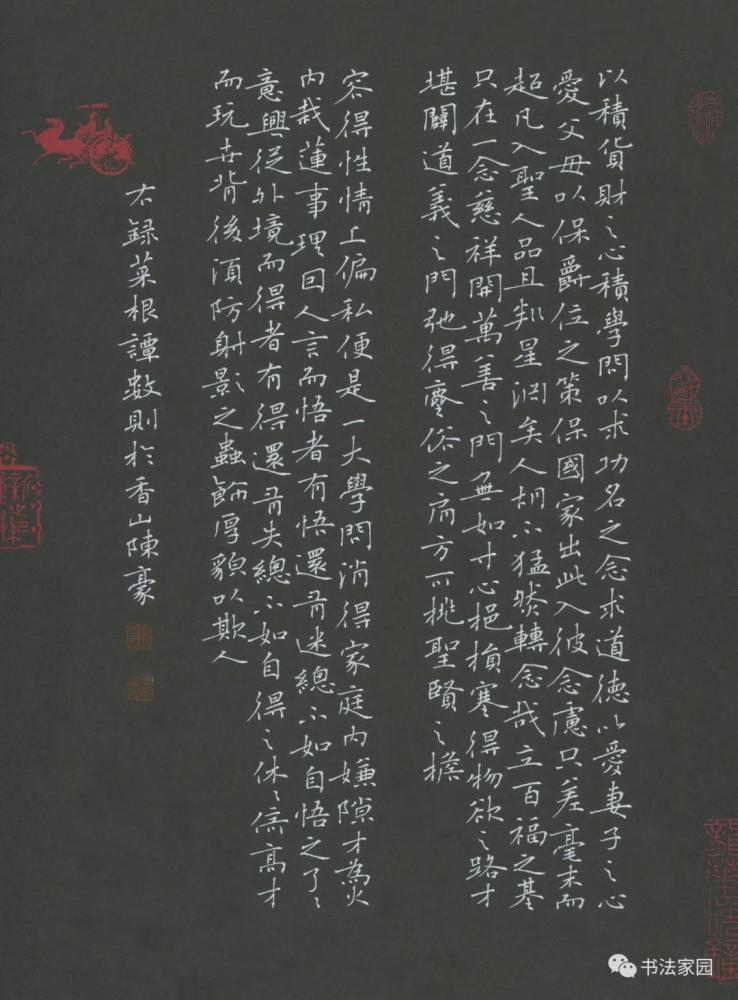 以積貨財之心積學問以求功名之念求道德以愛妻子之心
愛父母以保爵位之策保國家出此入彼念慮只差毫末而
超凡入聖人品且判星淵矣人胡不猛然轉念哉立百福之基
只在一念慈祥開萬善之門無如寸心挹損塞得物欲之路才
堪闢道義之門弛得塵俗之肩方可挑聖賢之擔
容得性情上偏私便是一大學問消得家庭內嫌隙才為火
內哉蓮事理因人言而悟者有悟還有迷總不如自悟之了〻
意興從外境而得者有得還有失總不如自得之休〻無高才
而玩世背後須防射影之蟲飾厚貌以欺人
右録菜根譚數則於香山陳豪
书法家园